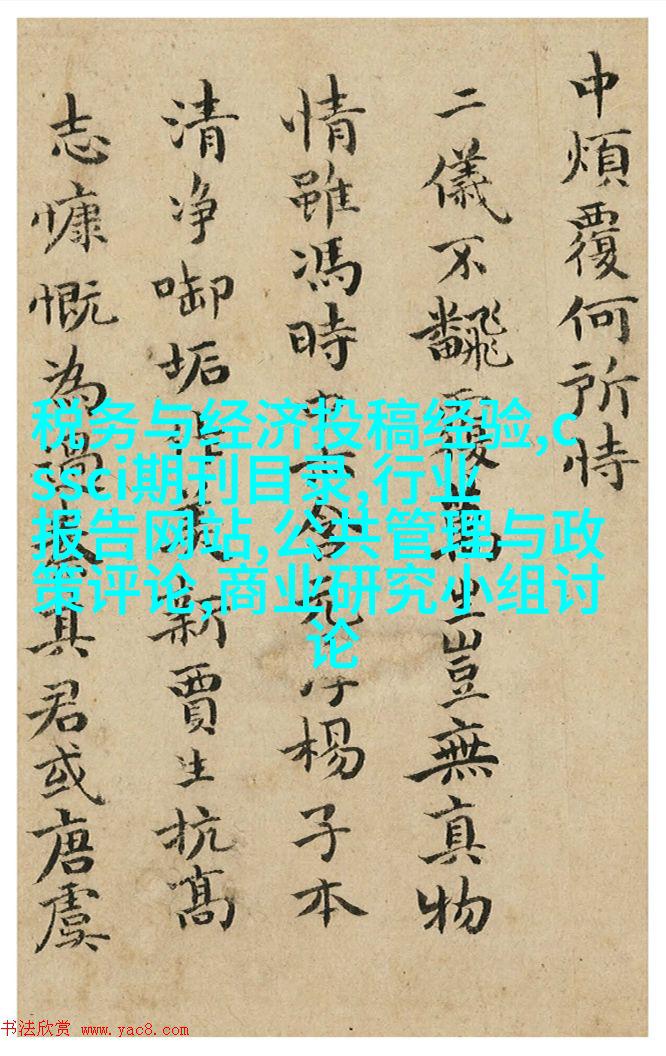 中煩覆何所恃
二儀不飜覆萬生豈無真物
情雖馮時楊子本
清净啣垢新賈生抗高
志慷慨為其君或唐虞
税务与经济投稿经验,c
ssci期刊目录,行业
报告网站,公共管理与政
策评论,商业研究小组讨
论
书法欣赏 www.yac8.com